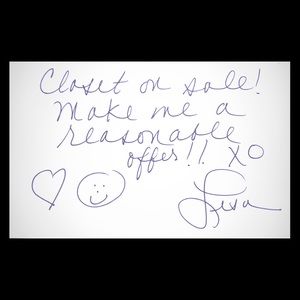 Closet on sale!
Make me a
reasonable
offer!! XO
Lisa